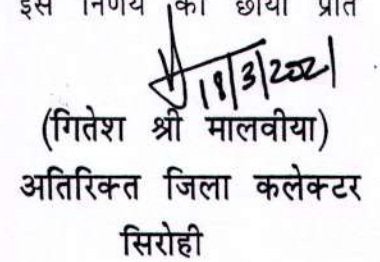 इस निर्णय की छाया प्रति
18/3/2021
(गितेश श्री मालवीया)
अतिरिक्त जिला कलेक्टर
सिरोही